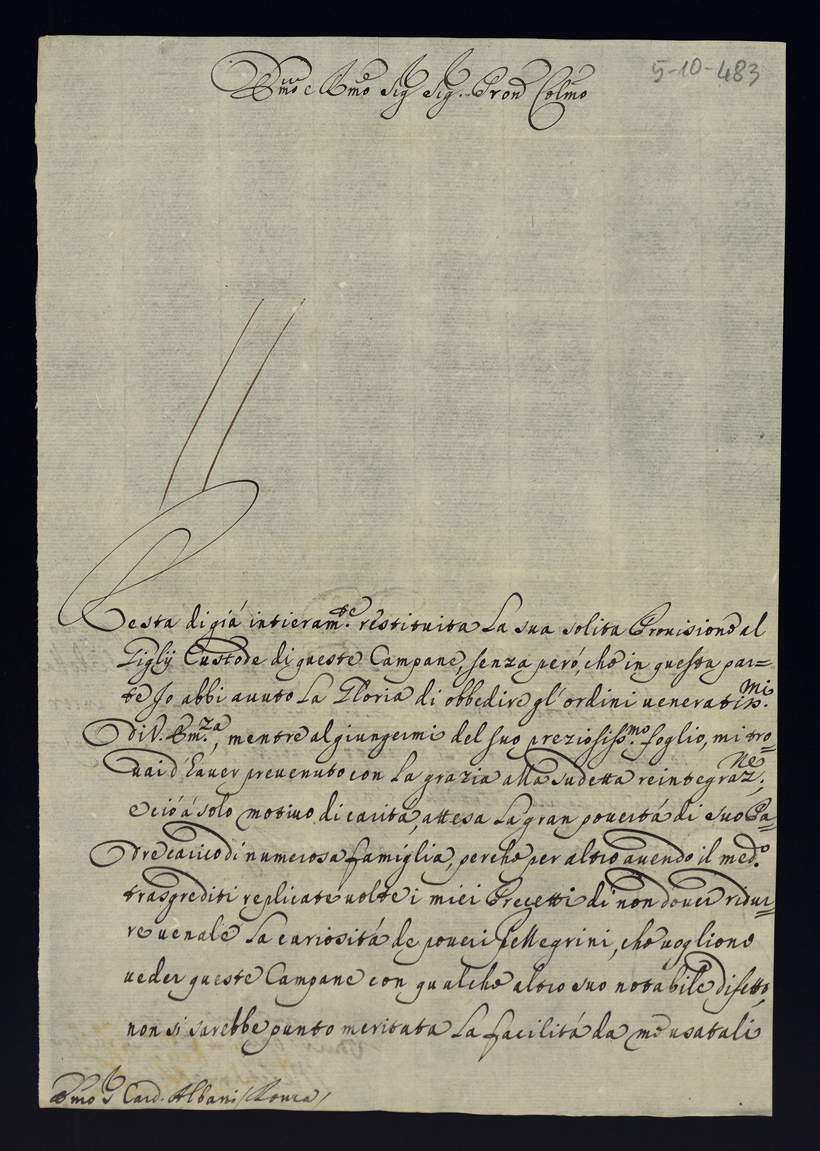 Em̃o e Rm̃o Sig Sig.r Pron̄ Colmo
5-10-483
Resta di già intieram.te restituita la sua solita Provisione al
Giglij Custode di queste Campane, senza però, che in questa par=
te Io abbi avuto la Gloria di obbedire gl'ordini veneratis.mi
di V. Em.za, mentre al giungermi del suo preziosiss.mo foglio, mi tro=
vai d'haver prevenuto con la grazia alla sudetta reintegraz.ne;
e ciò à solo motivo di carità, attesa la gran povertà di suo Pa=
dre carico di numerosa famiglia, perche per altro avendo il med.o
trasgrediti replicate volte i miei Precetti di non dover ridur=
re venale la curiosità de poveri Pellegrini, che vogliono
veder queste Campane con qualche altro suo notabile difetto,
non si sarebbe punto meritata la facilità da me usatali
Em̃o S Card. Albani (Roma)